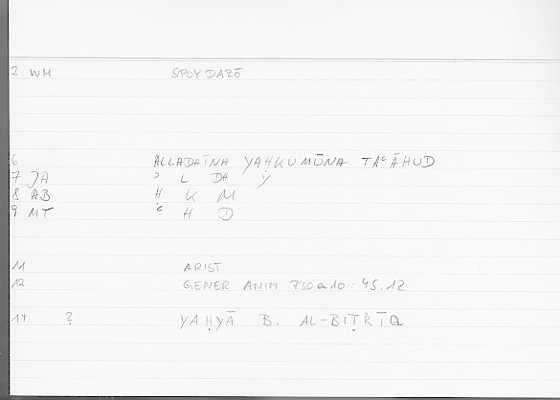 2 WM SPOYDAZŌ
6 ALLADHĪNA YAḤKUMŪNA TAʿĀHUD
7 JA ʾ L DH Y
8 AB Ḥ K M
9 MT ʿ H D
11 ARIST
12 GENER ANIM 730a10: 45.12
14 ? YAḤYĀ B. AL-BIṬRĪQ